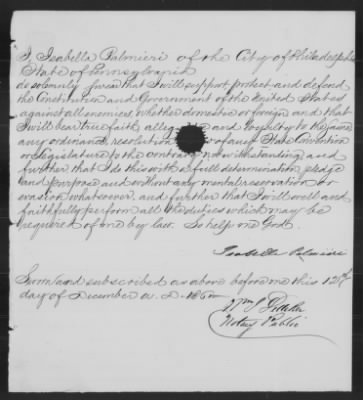 I Isabella Palmieri of the City of Philadelphia
State of Pennsylvania
do solemnly swear that I will support protect and defend
the Constitution and Government of the United States
against all enemies, whether domestic or foreign and that
I will bear true faith, alleg and loyalty to the same
any ordinance, resolution or of any State Convention
or Legislature to the contrary notwithstanding, and
further that I do this with a full determination, pledge
and purpose and without any mental reservation or
evasion whatsoever, and further that I will well and
faithfully perform all the duties which may be
required of me by law. So help me God.
Isabella Palmieri
Sworn and subscribed as above before me this 12th
day of December A. D. 186
Wm
Notary Public